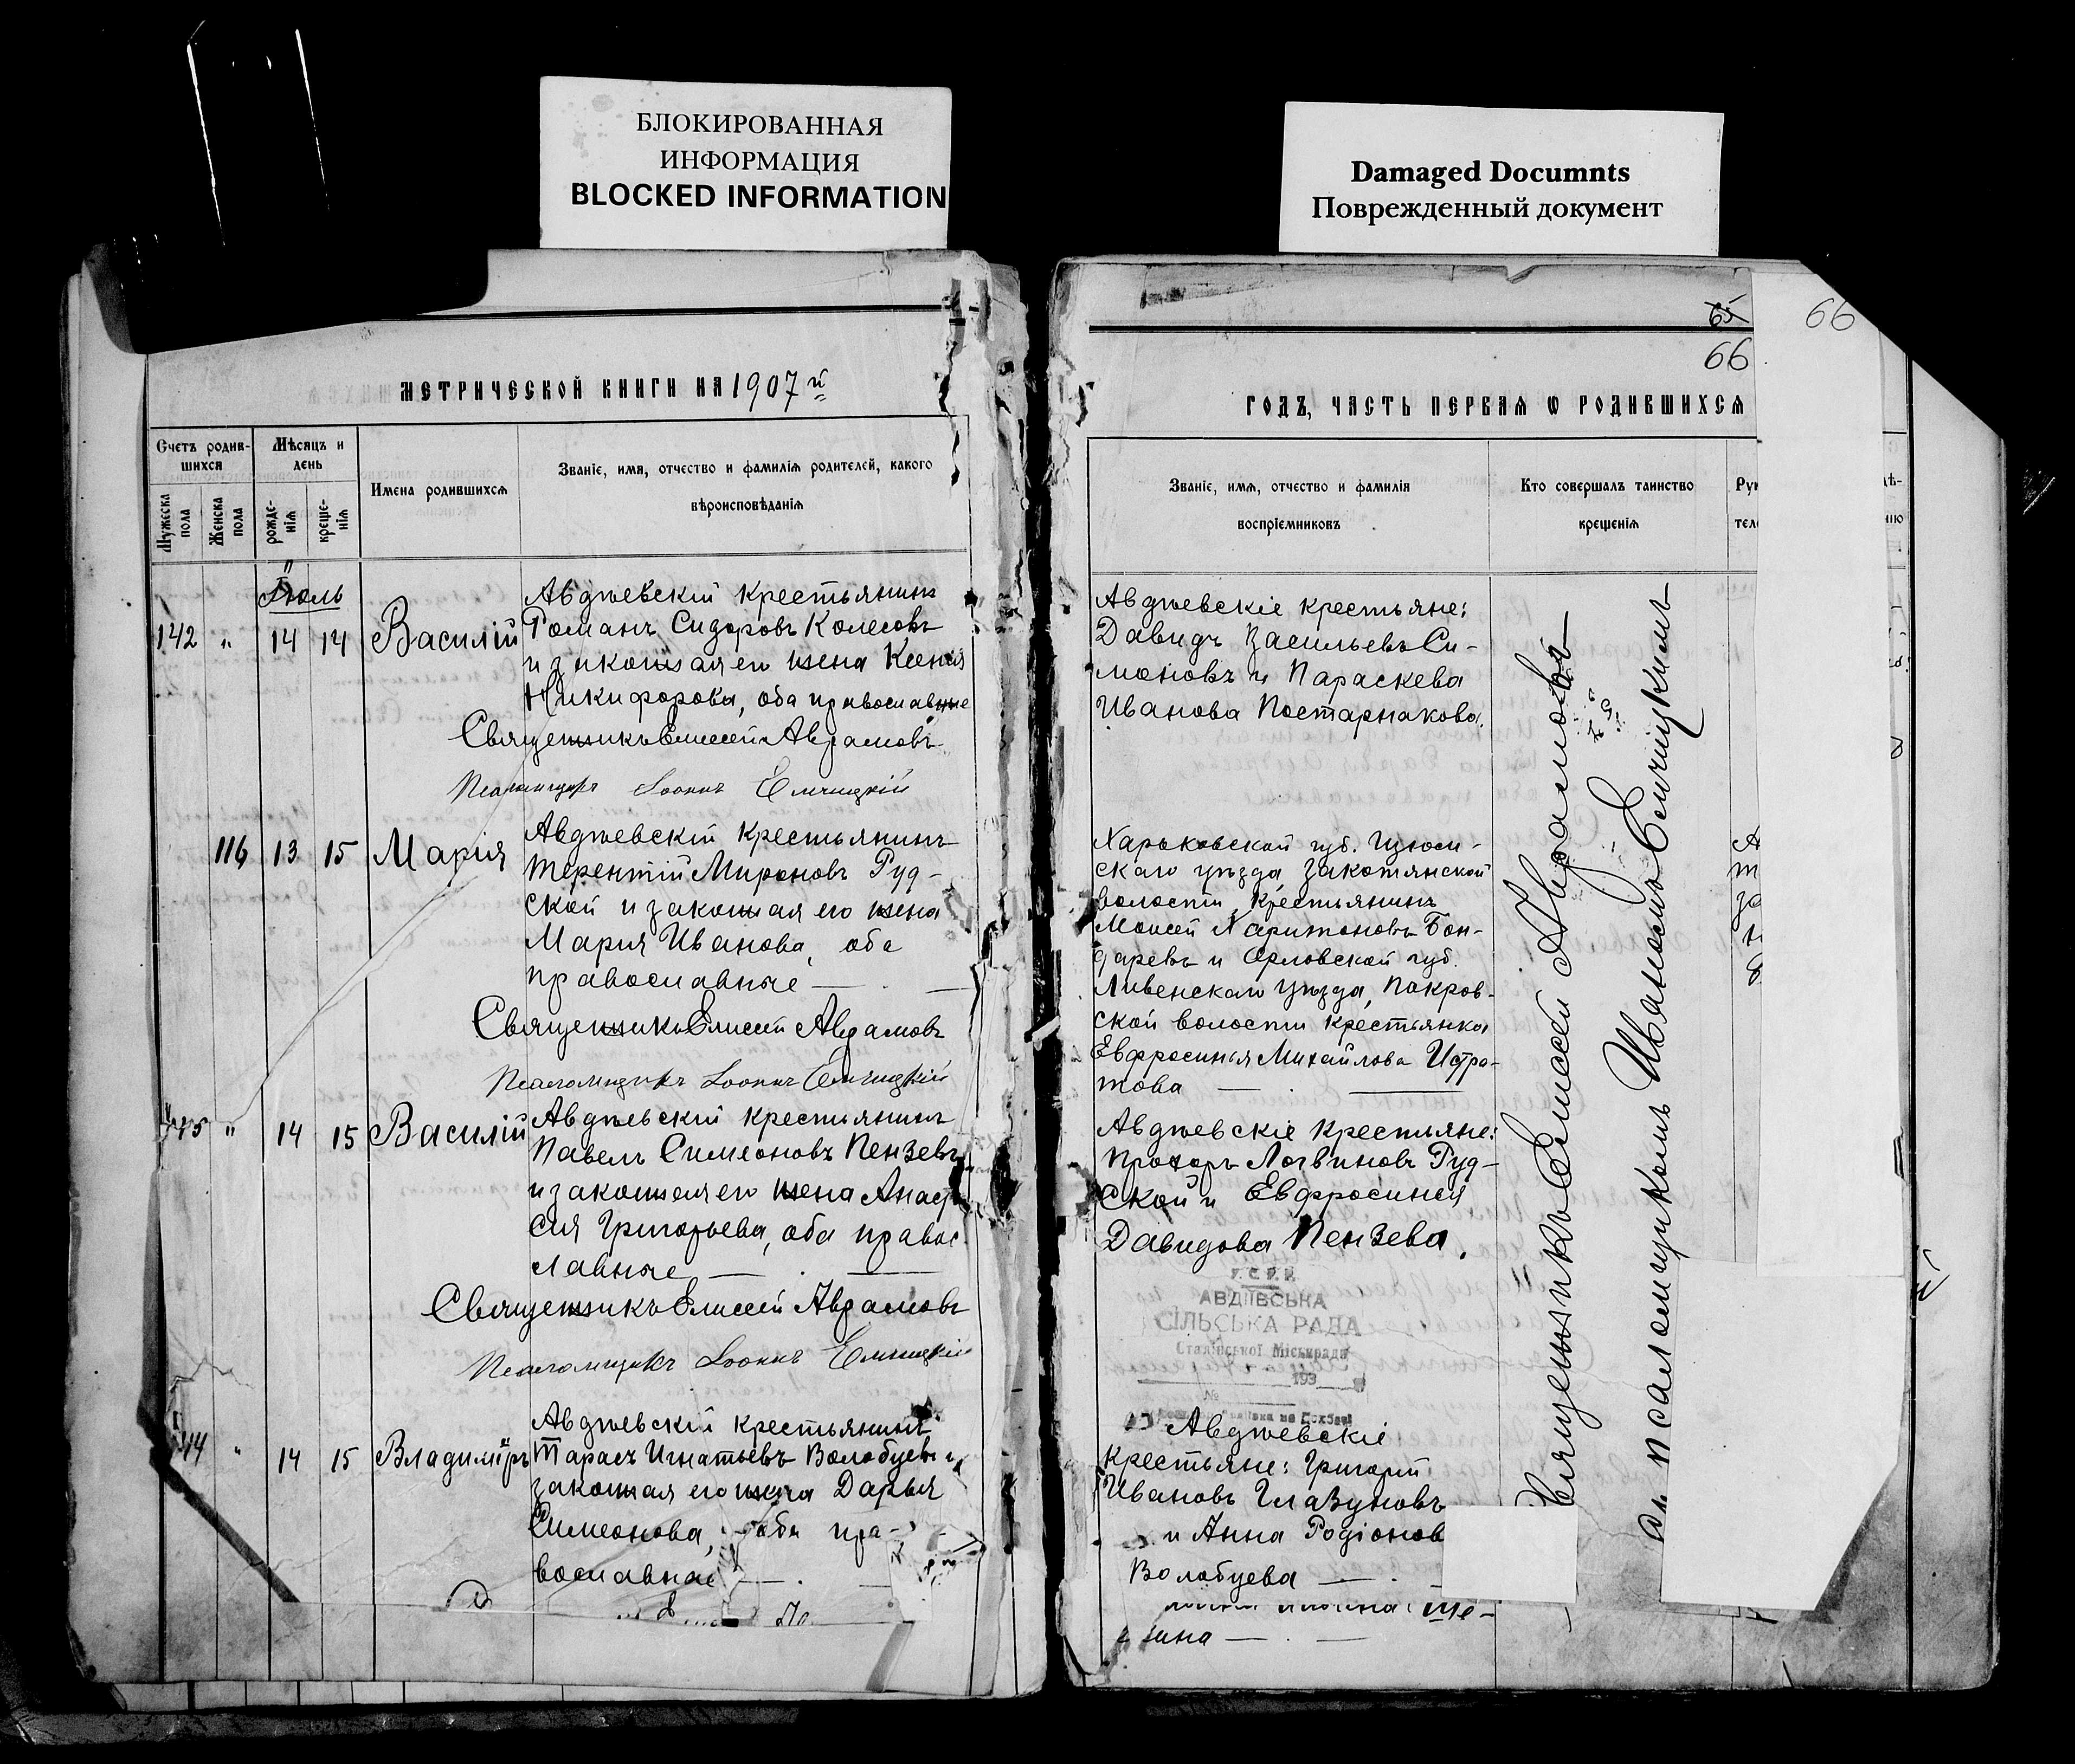 БЛОКИРОВАННАЯ
ИНФОРМАЦИЯ
BLOCKED INFORMATION
Damaged Documnts
Поврежденный документ
МЕТРИЧЕСКОЙ КНИГИ НА 1907 й
Счетъ родив-
шихся
Мѣсяцъ и
день
Имена родившихся
Званіе, имя, отчество и фамилія родителей, какого
вѣроисповѣданія
Мужеска
пола
Женска
пола
рожде-
нія
креще-
нія
Іюль
142 " 14 14 Василій
Авдѣевскій крестьянинъ
Романъ Сидоровъ Колесовъ
и законная его жена Ксенія
Никифорова, оба православные
Священникъ Елисей Аврамовъ
Псаломщикъ Іоаннъ Елчицкій
116 13 15 Марія
Авдѣевскій крестьянинъ
Терентій Мироновъ Руд-
ской и законная его жена
Мария Иванова, оба
православные
Священникъ Елисей Аврамовъ
Псаломщикъ Іоаннъ Елчицкій
" 14 15 Василій
Авдѣевскій крестьянинъ
Павелъ Симеоновъ Пензевъ
и законная его жена Анаста
сия Григорьева, оба правос
лавные
Священникъ Елисей Аврамовъ
Псаломщикъ Іоаннъ Елчицкій
144 " 14 15 Владиміръ
Авдѣевскій крестьянинъ
Тарасъ Игнатьевъ Волобуевъ и
законная его жена Дарья
Симеонова, оба пра-
вославные
65
66
66
ГОДЪ, ЧАСТЬ ПЕРВАЯ Ѡ РОДИВШИХСЯ
Званіе, имя, отчество и фамилія
воспріемниковъ
Кто совершалъ таинство
крещенія
Рук
тел
Авдѣевскіе крестьяне:
Давидъ Васильевъ Си-
моновъ и Параскева
Иванова Постарнакова.
Харьковской губ. Изюм-
скаго уѣзда Закотянской
волости крестьянинъ
Моисей Харитоновъ Бон-
даревъ и Орловской губ.
Ливенскаго уѣзда, Покров-
ской волости крестьянка
Евфросинья Михайлова Истра-
това
Авдѣевскіе крестьяне:
Прохоръ Логвиновъ Руд-
ской и Евфросинья
Давидова Пензева.
У.С.Р.Р.
АВДІЇВСЬКА
СІЛЬСЬКА РАДА
Сталінської Міськради
193
№
Авдѣевскіе
крестьяне: Григорій
Ивановъ Глазуновъ
и Анна Родіонов
Волобуева
Священникъ Елисей Аврамовъ
съ псаломщикомъ Іоанномъ Елчицкимъ